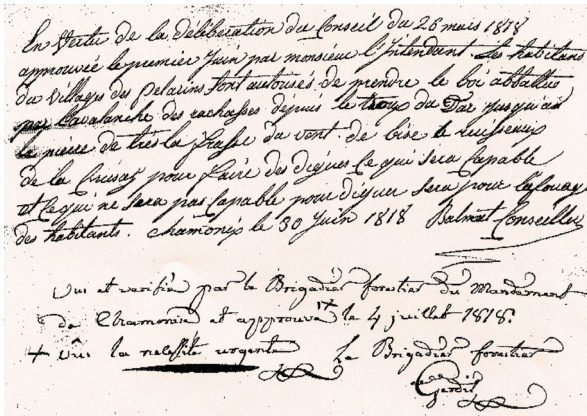 En Vertu de la délibération du Conseil du 26 mais 1818
approuvée le premier Juin par monsieur l'Intendant Les habitans
du village des Pelarins sont autorisés de prendre le boi abbattue
par Lavalanche des rachasses depuis le troux du Dar jusqu'au
la pierre de tres la du vent de bise le Ruisseux
de la pour faire des digues Ce qui sera Capable
et Ce qui ne sera pas Capable pour diguer sera pour
des habitants. Chamonix le 30 Juin 1818 Balmat Conseiller
Vus et verifié par le Brigadier forestier du Mandement
de Chamonix et approuvé + le 4 juillet 1818.
+ vus la nelessité urgente Le Brigadier forestier
Gerdil